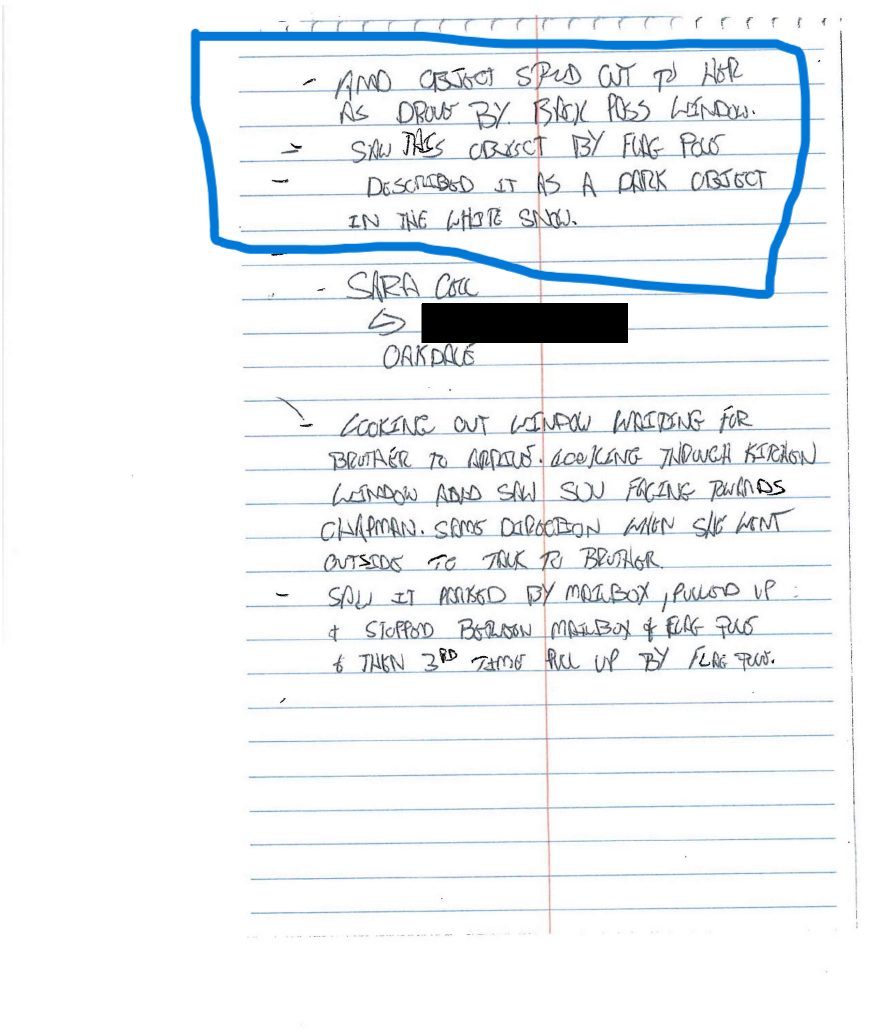 - AND OBJECT STUD OUT TO HER
AS DROVE BY. BACK PASS WINDOW.
- SAW THIS OBJECT BY FLAG POLE
- DESCRIBED IT AS A DARK OBJECT
IN THE WHITE SNOW.
-
- SARA
↳
OAKDALE
- LOOKING OUT WINDOW WAITING FOR
BROTHER TO ARRIVE. LOOKING THROUGH KITCHEN
WINDOW AND SAW SUV FACING TOWARDS
CHAPMAN. SAME DIRECTION WHEN SHE WENT
OUTSIDE TO TALK TO BROTHER.
- SAW IT PARKED BY MAILBOX, PULLED UP
& STOPPED BETWEEN MAILBOX & FLAG POLE
& THEN 3RD TIME PULL UP BY FLAG POLE.